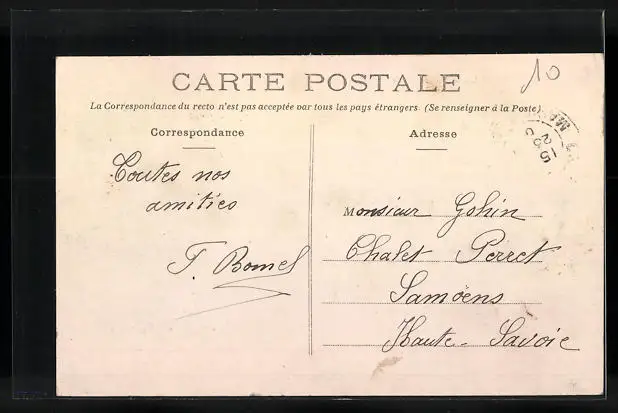 10
CARTE POSTALE
La Correspondance du recto n'est pas acceptée par tous les pays étrangers. (Se renseigner à la Poste).
Correspondance
Toutes nos
amitiés
Adresse
Monsieur Gohin
Chalet Perret
Samoëns
Haute-Savoie